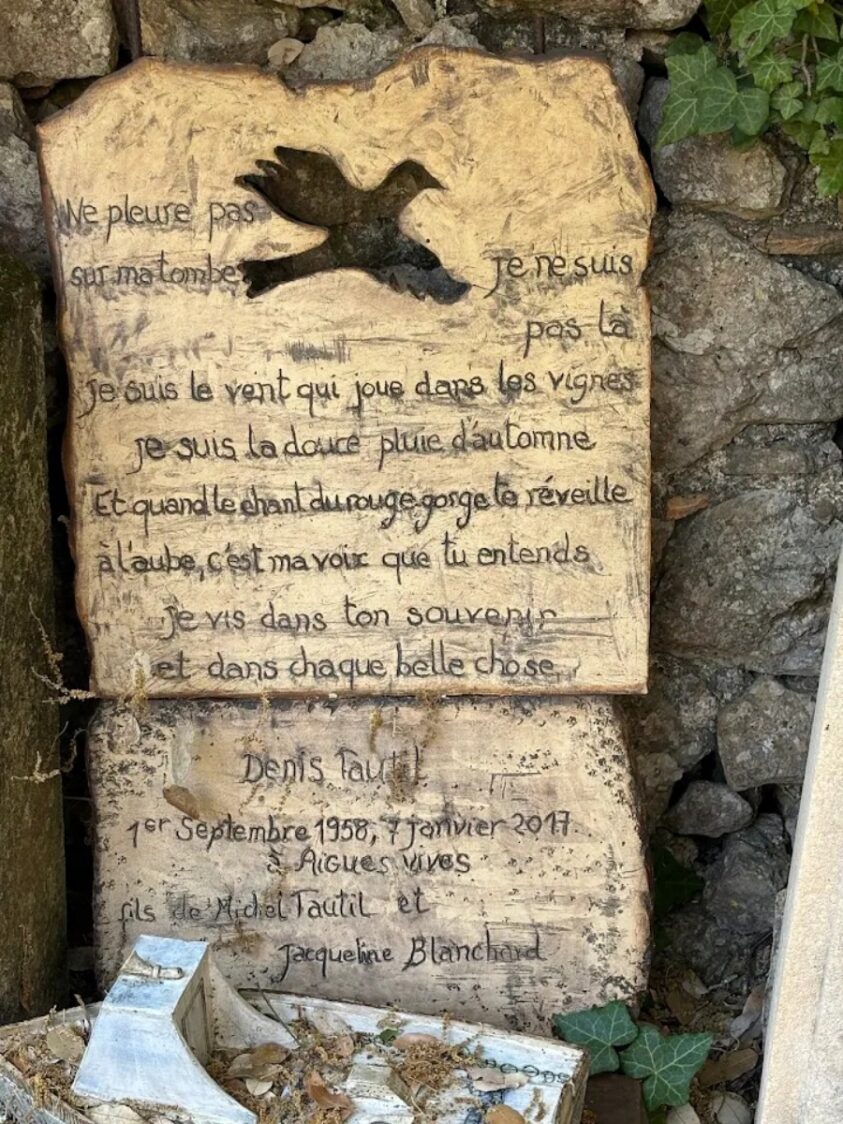 Ne pleure pas
sur ma tombe je ne suis
pas là
je suis le vent qui joue dans les vignes
je suis la douce pluie d'automne
Et quand le chant du rouge gorge te réveille
à l'aube, c'est ma voix que tu entends
je vis dans ton souvenir
et dans chaque belle chose
Denis Tautil
1er Septembre 1958, 7 janvier 2017
à Aigues vives
fils de Michel Tautil et
Jacqueline Blanchard